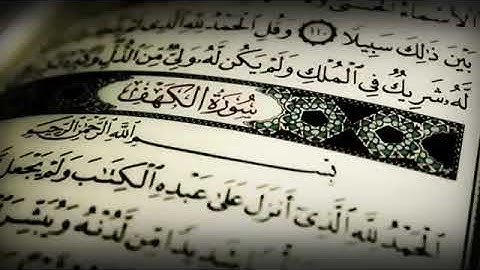 الأسماء الحسنى
بين ذلك سبيلا ١١٠ وقل الحمد لله الذي
له شريك في الملك ولم يكن له ولي من الذل وكبره
سورة الكهف
بسم الله الرحمن الرحيم
الحمد لله الذي أنزل على عبده الكتاب ولم يجعل
شديدا من لدنه ويبشر